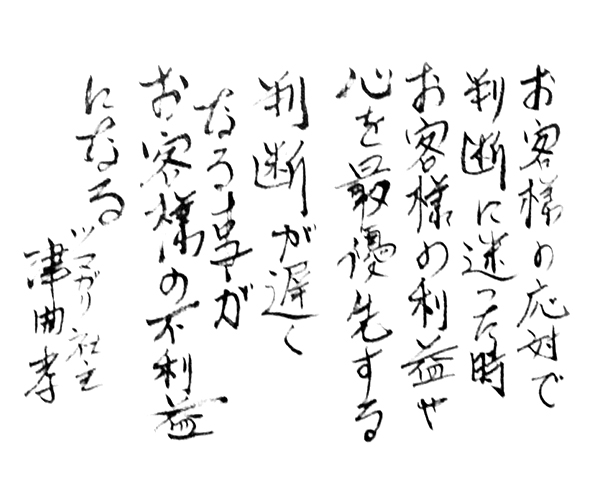 お客様の応対で
判断に迷った時
お客様の利益や
心を最優先する
判断が遅く
なる事が
お客様の不利益
になる
ツマガリ社主
津曲孝